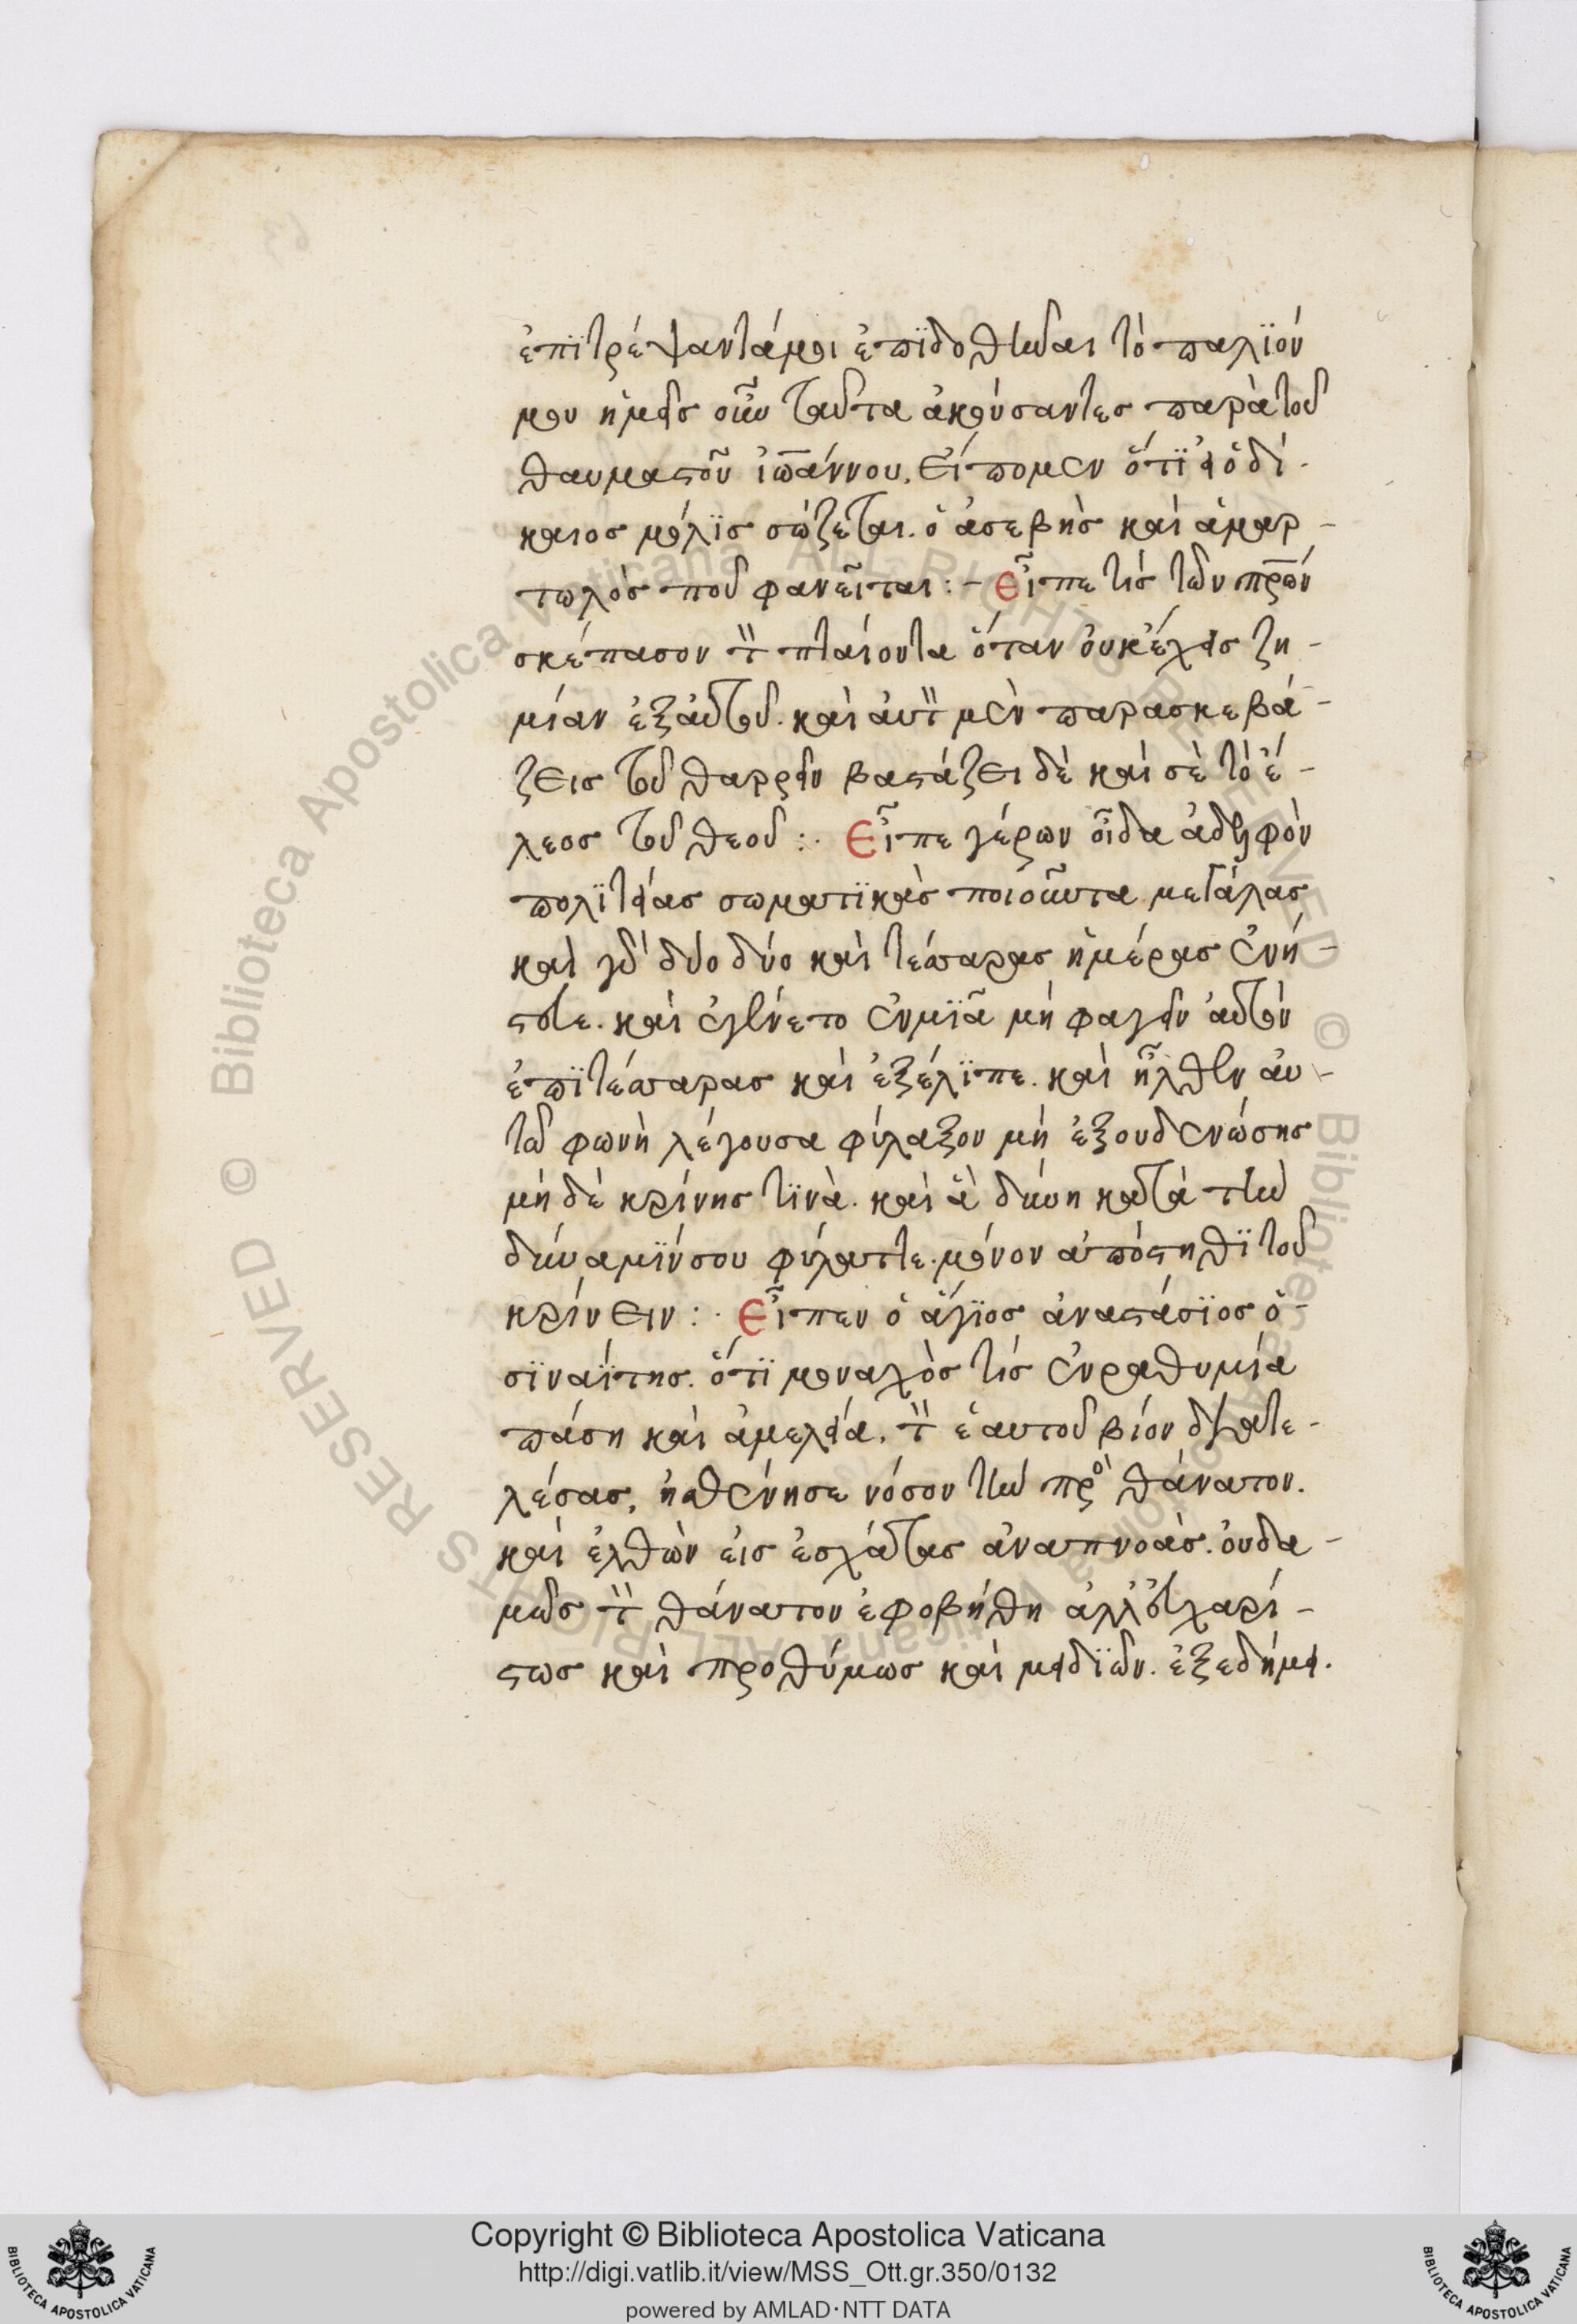 ἐπϊτρέψαντάμοι ἐπϊδοθῆναι τὸ παλϊόν
μου ἡμεῖς οὖν ταῦτα ἀκούσαντες παρὰτοῦ
θαυμαστοῦ ἰωάννου, εἴπομεν ὅτϊ εἰ ὁ δί-
καιος μόλϊς σώζεται. ὁ ἀσεβὴς καὶ ἁμαρ-
τωλὸς ποῦ φανεῖται :- Εἶπε τίς τῶν πρῶν
σκέπασον τὸν πταίοντα ὅταν οὐκἔχεις ζη-
μίαν ἐξἀυτοῦ. καὶ ἀυτὸν μὲν παρασκεβά-
ζεις τοῦ θαρρεῖν βαστάζει δὲ καὶ σὲ τὸ ἔ-
λεος τοῦ θεοῦ :· Εἶπε γέρων οἶδα ἀδελφὸν
πολϊτείας σωματϊκὰς ποιοῦντα μεγάλας
καὶ γὰρ δύο δύο καὶ τέσσαρας ἡμέρας ἐνή-
στευε. καὶ ἐγένετο ἐνμϊᾶ μὴ φαγεῖν ἀυτὸν
ἐπϊτέσσαρας καὶ ἐξέλϊπε. καὶ ἦλθεν ἀυ-
τῶ φωνὴ λέγουσα φύλαξον μὴ ἐξουδενώσης
μὴ δὲ κρίνης τϊνὰ. καὶ ἃ δύνη κατὰ τὴν
δύναμϊνσου φύλαττε. μόνον ἀπόστηθϊ τοῦ
κρίνειν :· Εἶπεν ὁ ἅγϊος ἀναστάσϊος ὁ-
σϊναΐτης. ὅτϊ μοναχὸς τίς ἐνραθυμία
πάση καὶ ἀμελεία, τὸν ἑαυτοῦ βίον διατε-
λέσας, ἠσθένησε νόσον τὴν πρὸ θάνατον.
καὶ ἐλθὼν εἰς ἐσχάτας ἀναπνοὰς. οὐδα-
μῶς τὸν θάνατον ἐφοβήθη ἀλλ' εὐχαρί-
στως καὶ προθύμως καὶ μειδϊῶν. ἐξεδήμει.
Copyright © Biblioteca Apostolica Vaticana
http://digi.vatlib.it/view/MSS_Ott.gr.350/0132
powered by AMLAD·NTT DATA